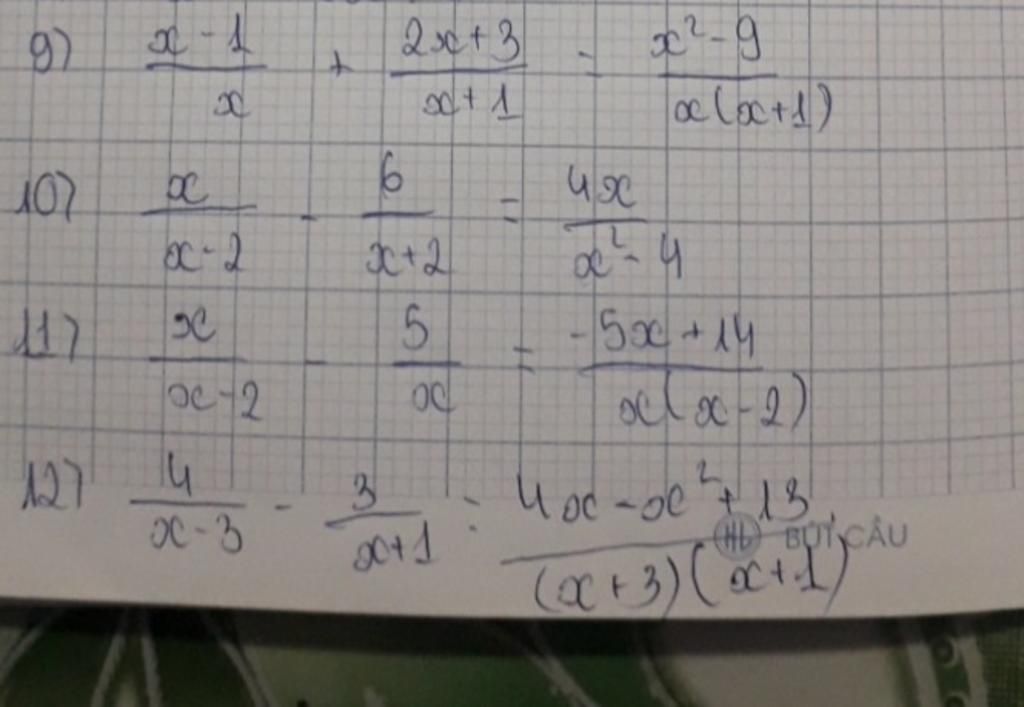 9) \frac{x-1}{x} + \frac{2x+3}{x+1} = \frac{x^2-9}{x(x+1)}
10) \frac{x}{x-2} - \frac{6}{x+2} = \frac{4x}{x^2-4}
11) \frac{x}{x-2} - \frac{5}{x} = \frac{-5x+14}{x(x-2)}
12) \frac{4}{x-3} - \frac{3}{x+1} = \frac{4x-x^2+13}{(x+3)(x+1)}
HL BÚT CẦU